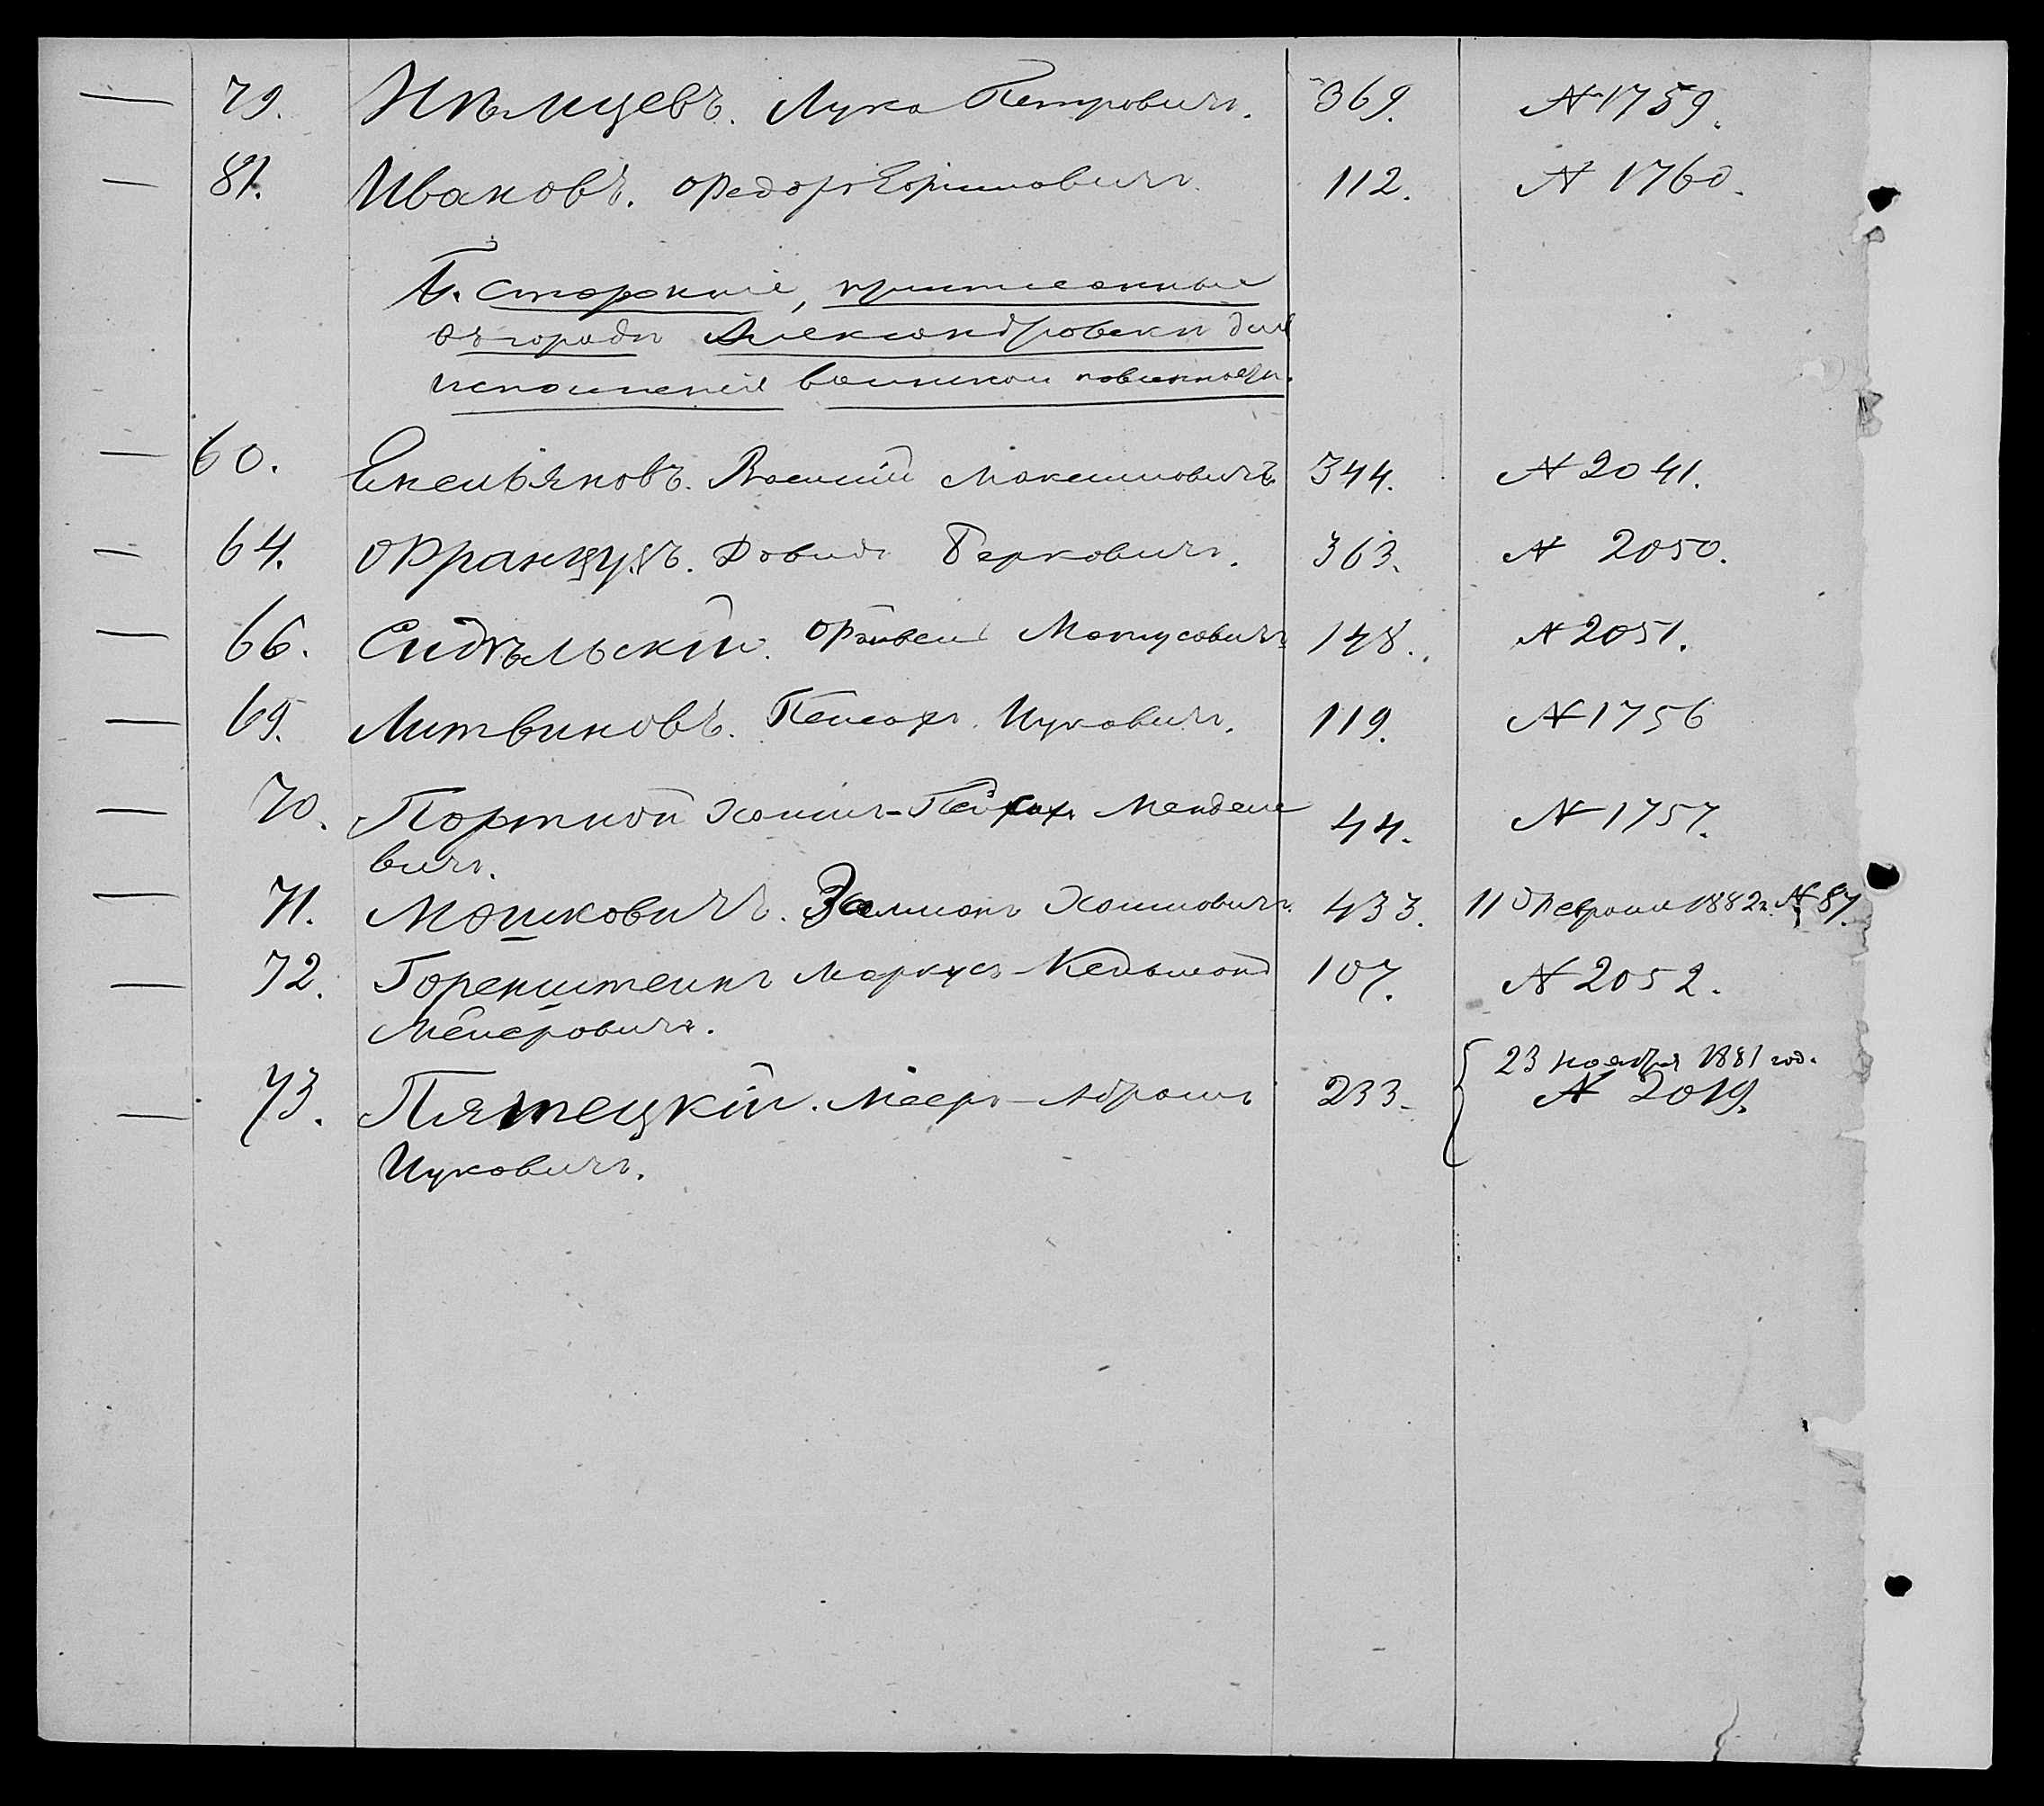 — 79. Нѣмцевъ. Лука Петровичъ. 369. № 1759.
— 81. Ивановъ. Федоръ Ефимовичъ. 112. № 1760.
Б. Сторонніе, приписанные
въ городѣ Александровскѣ для
исполненія воинской повинности.
— 60. Емельяновъ. Василій Максимовичъ 344. № 2041.
— 64. Французъ. Довидъ Берковичъ. 363. № 2050.
— 66. Сидѣльскій. Файвель Мотусовичъ 148. № 2051.
— 69. Литвиновъ. Пейсахъ Ицковичъ. 119. № 1756
— 70. Портной Хаимъ-Пейсахъ Менделе 44. № 1757.
вичъ.
— 71. Мошковичъ. Залманъ Хаимовичъ. 433. 11 Февраля 1882 г. № 87.
— 72. Горенштейнъ Маркусъ- 107. № 2052.
Мееровичъ.
23 ноября 1881 год.
— 73. Пятецкій. Мееръ-Абрамъ 233. № 2019.
Ицковичъ.